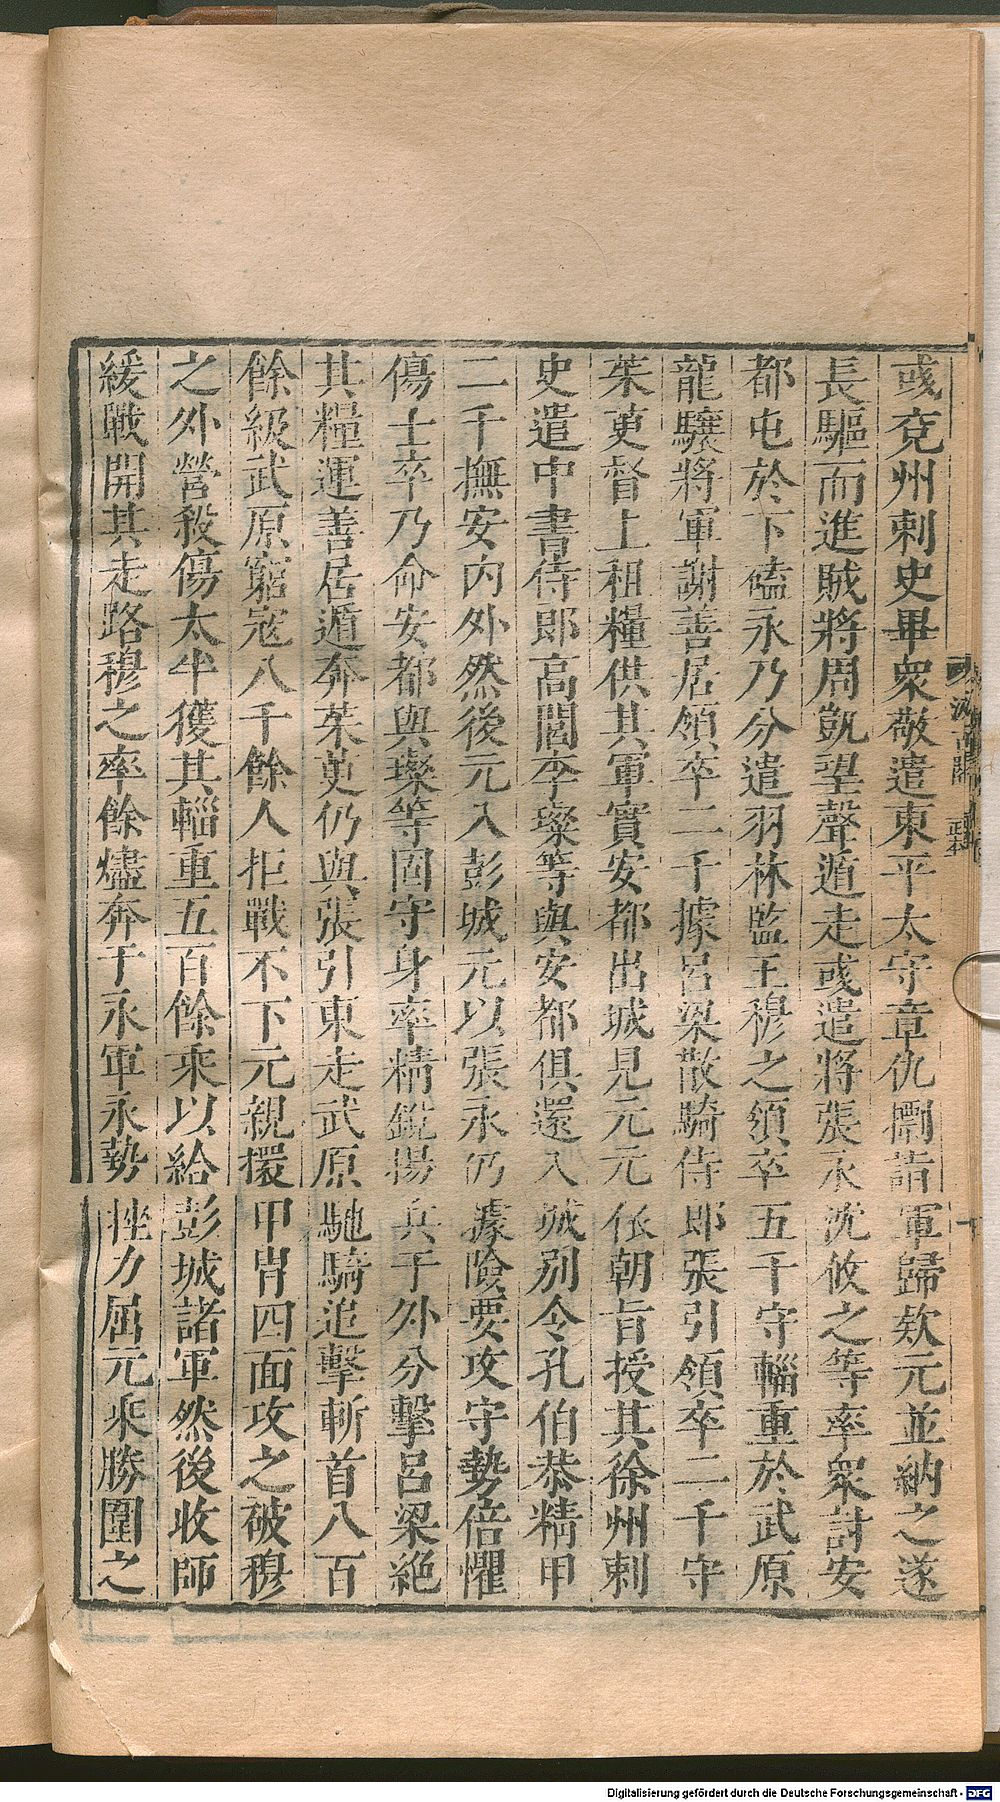 彧兗州刺史畢衆敬遣東平太守章仇㯹詣軍歸欵元並納之遂
長驅而進賊將周凱望聲遁走彧遣將張永沈攸之等率衆討安
都屯於下磕永乃分遣羽林監王穆之領卒五千守輜重於武原
龍驤將軍謝善居領卒二千據呂梁散騎侍郎張引領卒二千守
茱萸督上租糧供其軍實安都出城見元元依朝旨授其徐州刺
史遣中書侍郎高閭李璨等與安都俱還入城別令孔伯恭精甲
二千撫安內外然後元入彭城元以張永仍據險要攻守勢倍懼
傷士卒乃命安都與璨等固守身率精銳揚兵于外分擊呂梁絕
其糧運善居遁奔茱萸仍與張引東走武原馳騎追擊斬首八百
餘級武原窮寇八千餘人拒戰不下元親擐甲冑四面攻之破穆
之外營殺傷太半獲其輜重五百餘乘以給彭城諸軍然後收師
緩戰開其走路穆之率餘燼奔于永軍永勢挫力屈元乘勝圍之
Digitalisierung gefördert durch die Deutsche Forschungsgemeinschaft - DFG